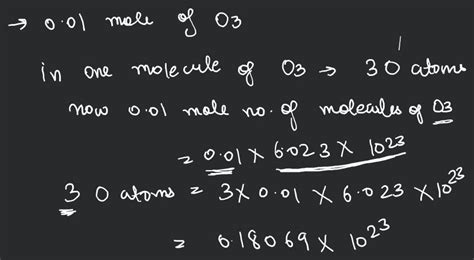 → 0.01 mole of O3
in one molecule of O3 → 3 O atoms
now 0.01 mole no. of molecules of O3
= 0.01 × 6.023 × 10²³
3 O atoms = 3 × 0.01 × 6.023 × 10²³
= 0.18069 × 10²³